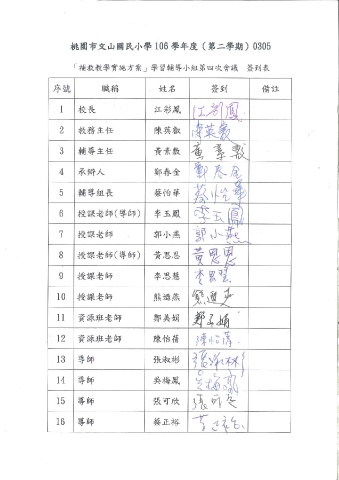 桃園市文山國民小學106學年度(第二學期)0305
「補救教學實施方案」學習輔導小組第四次會議 簽到表
序號 職稱 姓名 簽到 備註
1 校長 江彩鳳 江彩鳳
2 教務主任 陳英叡 陳英叡
3 輔導主任 黃素数 黃素数
4 承辦人 鄭春金 鄭春金
5 輔導組長 蔡怡華 蔡怡華
6 授課老師(導師) 李玉鳳 李玉鳳
7 授課老師 郭小燕 郭小燕
8 授課老師(導師) 黃思恩 黃思恩
9 授課老師 李思慧 李思慧
10 授課老師 熊迺燕
11 資源班老師 鄭美娟 鄭美娟
12 資源班老師 陳怡蒨 陳怡蒨
13 導師 張淑彬 張淑彬
14 導師 吳梅鳳 吳梅鳳
15 導師 張可欣 張可欣
16 導師 蔡正裕